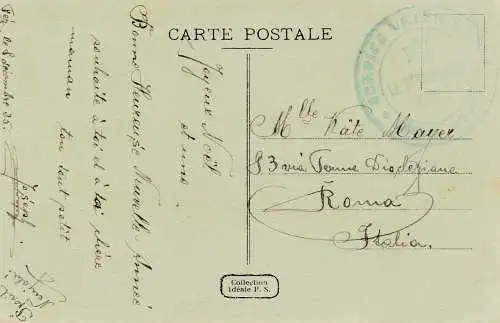 CARTE POSTALE
Joyeux Noël
et une
Bonne Heureuse Nouvelle Année
souhaite à toi et à ta chère
maman ton tout petit
Fez, le 8 décembre 35.
Mlle Käte Mayer
83 via Terme Diocleziane
Roma
Italia.
SERVICE
Collection
Idéale P. S.